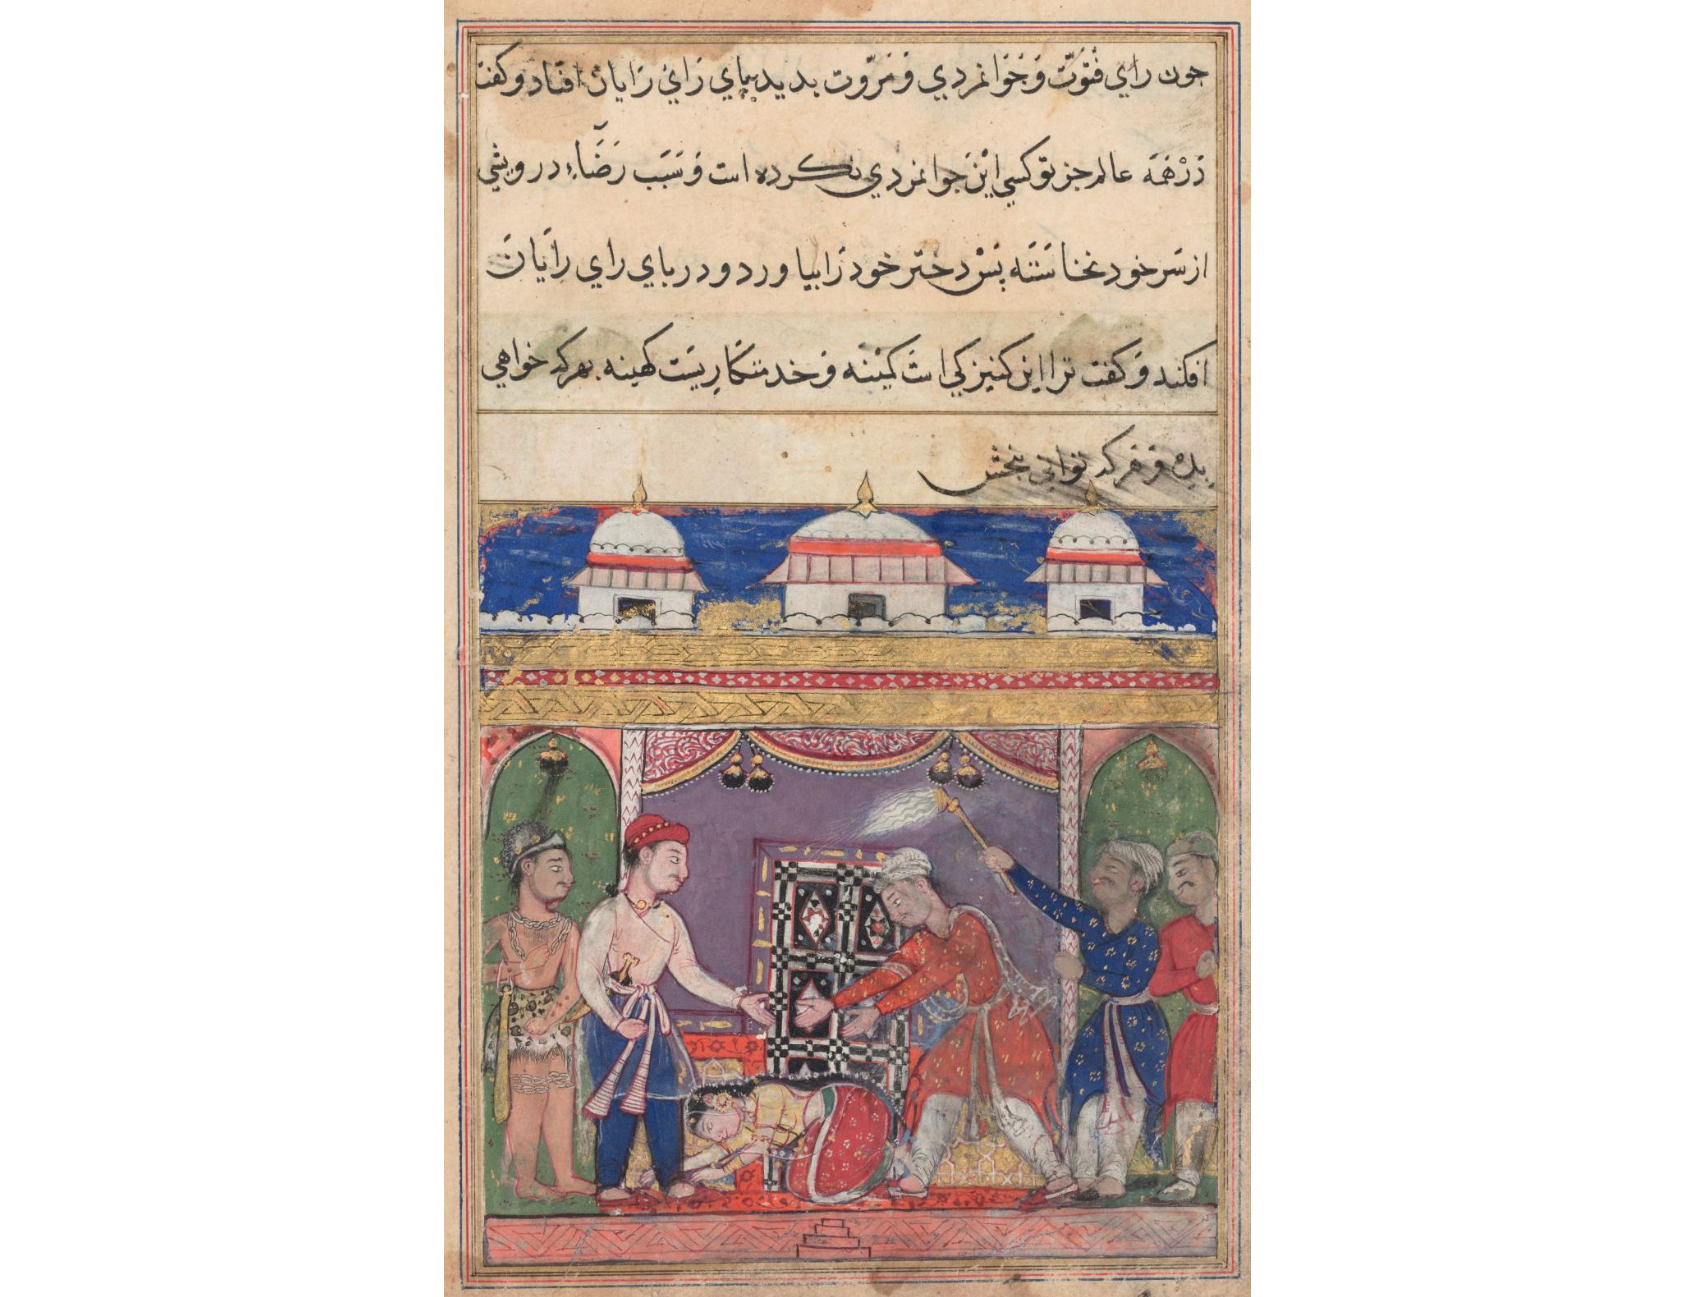 جون راي فُتُوّت وَ جَوَانمردي وَ مَرّوت بديد بپاي رَايِ رَايان افتاد و كفت
دَرْهَمَه عالم جز تو كسي ايْن جوانمردي نكرده است وَ سَبَب رَضَاءِ درويشي
از سَر خود نخاسَتَه پسْ دختر خود رَا بياورد و در باي راي رايَان
افكند وَ كفت ترا اين كنيزكي استْ كمينه وَ خدمتكاريست كهينه بهركه خواهي
بده وَ هَركه تواني بخش